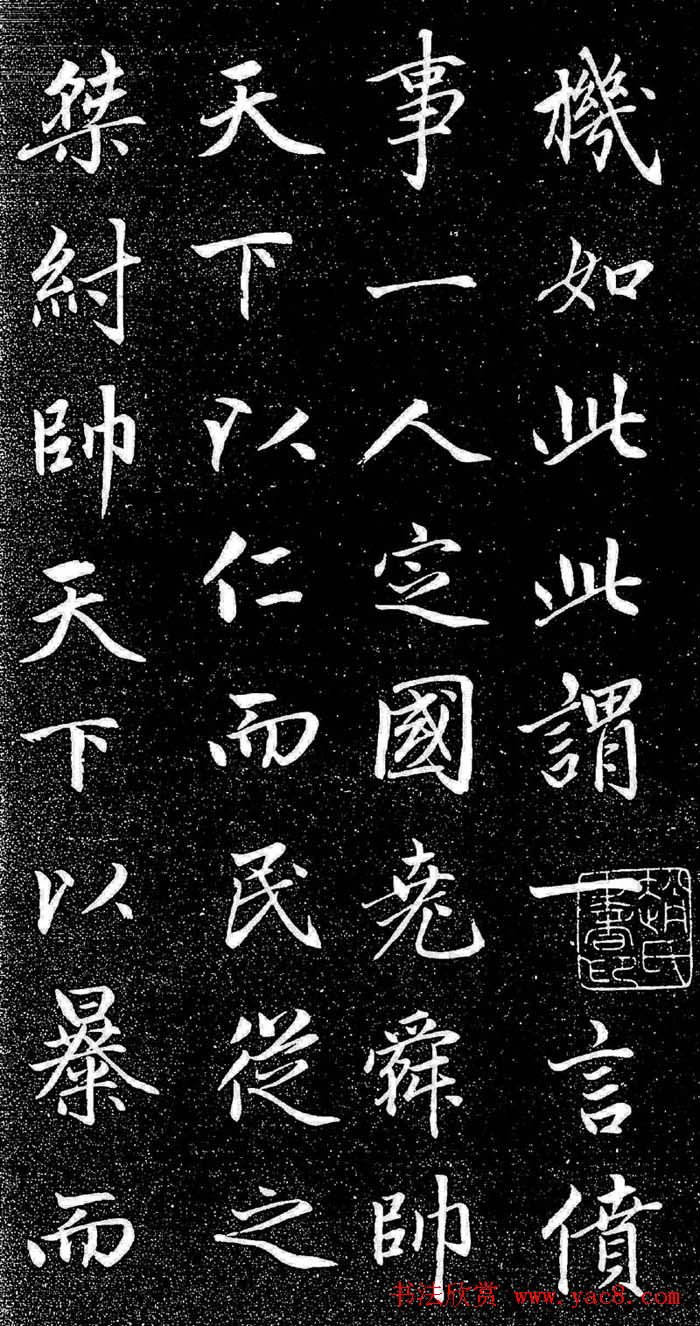 機如此此謂一言僨
事一人定國堯舜帥
天下以仁而民從之
桀紂帥天下以暴而
趙氏書印
书法欣赏 www.yac8.com